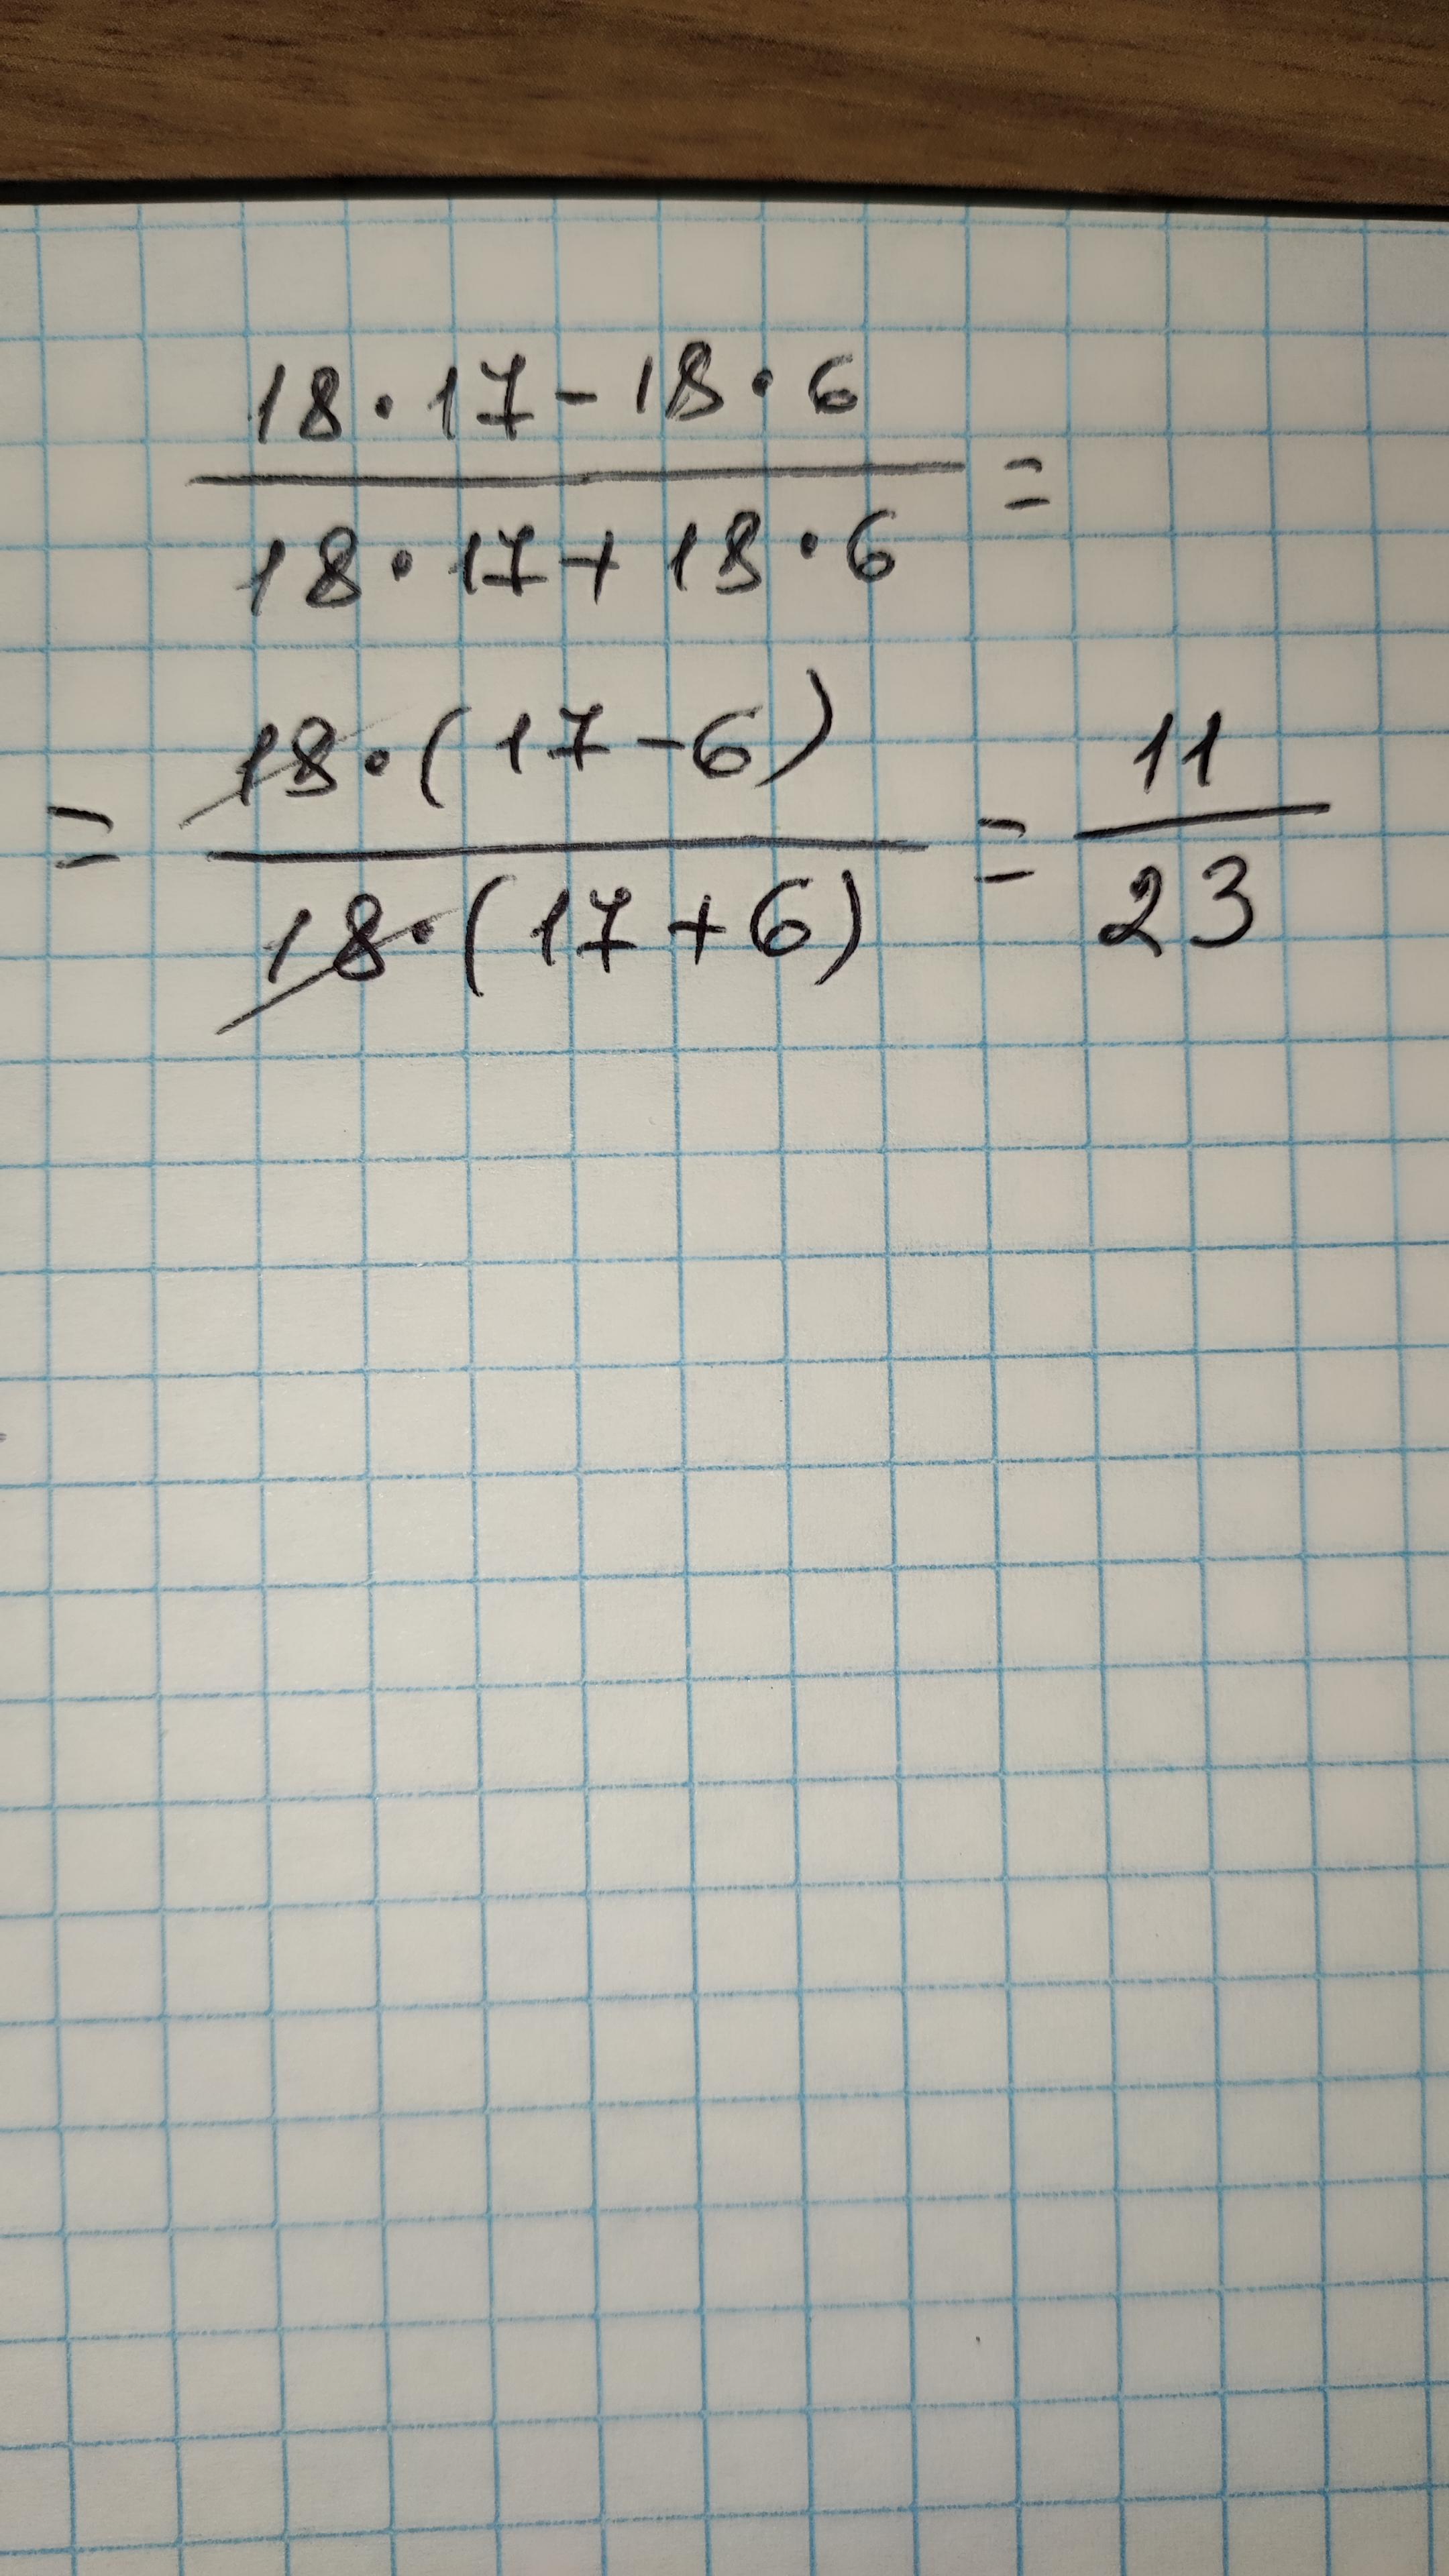 18·17-18·6
18·17+18·6 =
= 18·(17-6)
18·(17+6) = 11
23